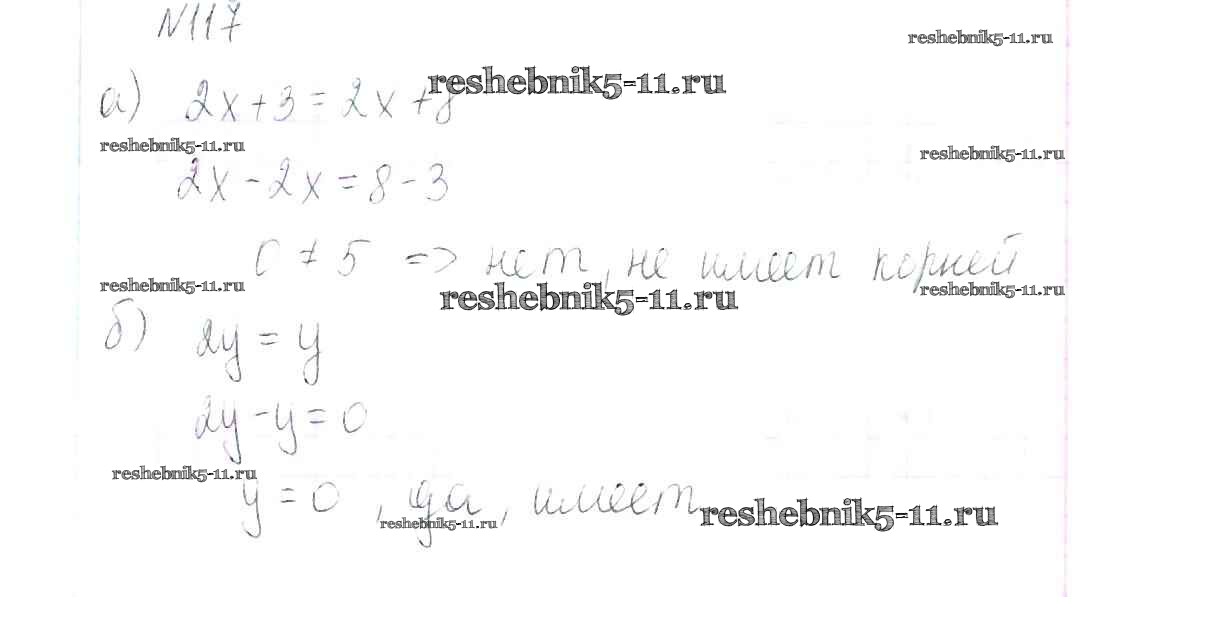 №117
reshebnik5-11.ru
а) 2x + 3 = 2x + 8
reshebnik5-11.ru
reshebnik5-11.ru
reshebnik5-11.ru
2x - 2x = 8 - 3
0 ≠ 5 => нет, не имеет корней
reshebnik5-11.ru
reshebnik5-11.ru
reshebnik5-11.ru
б) 2y = y
2y - y = 0
reshebnik5-11.ru
y = 0, да, имеет
reshebnik5-11.ru
reshebnik5-11.ru